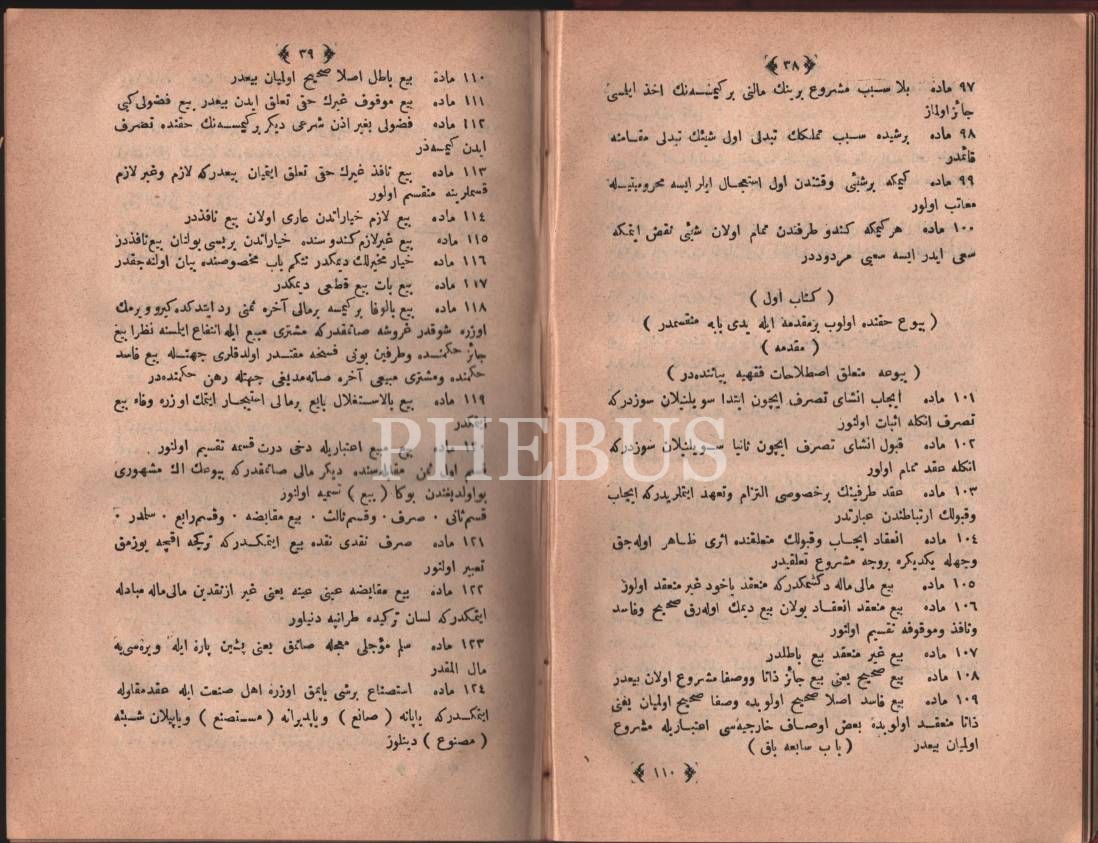 ﴿ ٣٨ ﴾
٩٧ ماده بلا سبب مشروع برينك مالنى بر كيمسه‌نك اخذ ايلمسى
جائز اولماز
٩٨ ماده برشيده سبب تملكك تبدلى اول شيئك تبدلى مقامنه
قائمدر
٩٩ ماده كيمكه برشيئى وقتندن اول استعجال ايلر ايسه محروميتيله
معاتب اولور
١٠٠ ماده هر كيمكه كندو طرفندن تمام اولان شيئى نقض ايتمكه
سعى ايدر ايسه سعيى مردوددر
( كتاب اول )
( بيوع حقنده اولوب برمقدمه ايله يدى بابه منقسمدر )
( مقدمه )
( بيوعه متعلق اصطلاحات فقهيه بياننده‌در )
١٠١ ماده ايجاب انشاى تصرف ايچون ابتدا سويلنيلان سوزدركه
تصرف انكله اثبات اولنور
١٠٢ ماده قبول انشاى تصرف ايچون ثانيا سويلنيلان سوزدركه
انكله عقد تمام اولور
١٠٣ ماده عقد طرفينك برخصوصى التزام وتعهد ايتملريدركه ايجاب
وقبولك ارتباطندن عبارتدر
١٠٤ ماده انعقاد ايجاب وقبولك متعلقنده اثرى ظاهر اوله‌جق
وجهله يكديكره بروجه مشروع تعلقيدر
١٠٥ ماده بيع مالى ماله دكشمكدركه منعقد ياخود غير منعقد اولور
١٠٦ ماده بيع منعقد انعقاد بولان بيع ديمك اوله‌رق صحيح وفاسد
ونافذ وموقوفه تقسيم اولنور
١٠٧ ماده بيع غير منعقد بيع باطلدر
١٠٨ ماده بيع صحيح يعنى بيع جائز ذاتا ووصفا مشروع اولان بيعدر
١٠٩ ماده بيع فاسد اصلا صحيح اولوبده وصفا صحيح اولميان يعنى
ذاتا منعقد اولوبده بعض اوصاف خارجيه‌سى اعتباريله مشروع
اولميان بيعدر ( باب سابعه باق )
﴿ ١١٠ ﴾
﴿ ٣٩ ﴾
١١٠ مادة بيع باطل اصلا صحيح اولميان بيعدر
١١١ ماده بيع موقوف غيرك حقى تعلق ايدن بيعدر بيع فضولى كبى
١١٢ ماده فضولى بغير اذن شرعى ديكر بر كيمسه‌نك حقنده تصرف
ايدن كيمسه‌در
١١٣ ماده بيع نافذ غيرك حقى تعلق ايتميان بيعدركه لازم وغير لازم
قسملرينه منقسم اولور
١١٤ ماده بيع لازم خياراتدن عارى اولان بيع نافذدر
١١٥ ماده بيع غيرلازم كندوسنده خياراتدن بريسى بولنان بيع نافذدر
١١٦ ماده خيار مخيرلك ديمكدر نتكيم باب مخصوصنده بيان اولنه‌جقدر
١١٧ ماده بيع بات بيع قطعى ديمكدر
١١٨ ماده بيع بالوفا بر كيمسه برمالى آخره ثمنى رد ايتدكده كيرو ويرمك
اوزره شوقدر غروشه صاتمقدركه مشترى مبيع ايله انتفاع ايلمسنه نظرا بيع
جائز حكمنده وطرفين بونى فسخه مقتدر اولدقلرى جهتله بيع فاسد
حكمنده ومشترى مبيعى آخره صاته‌مديغى جهتله رهن حكمنده‌در
١١٩ ماده بيع بالاستغلال بايع برمالى استيجار ايتمك اوزره وفاء بيع
ايتمكدر
ماده بيع مبيع اعتباريله دخى درت قسمه تقسيم اولنور .
قسم اول ثمن مقابله‌سنده ديكر مالى صاتمقدركه بيوعك اك مشهورى
بو اولديغندن بوكا ( بيع ) تسميه اولنور
قسم ثانى . صرف . وقسم ثالث . بيع مقايضه . وقسم رابع . سلمدر .
١٢١ ماده صرف نقدى نقده بيع ايتمكدركه تركجه اقچه بوزمق
تعبير اولنور
١٢٢ ماده بيع مقايضه عينى عينه يعنى غير از نقدين مالى ماله مبادله
ايتمكدركه لسان تركيده طرانپه دنيلور
١٢٣ ماده سلم مؤجلى معجله صاتمق يعنى پشين پاره ايله ويره‌سى‌يه
مال المقدر
١٢٤ ماده استصناع برشى ياپمق اوزره اهل صنعت ايله عقد مقاوله
ايتمكدركه ياپانه ( صانع ) وياپديرانه ( مستصنع ) وياپيلان شيئه
( مصنوع ) دينلور
PHEBUS